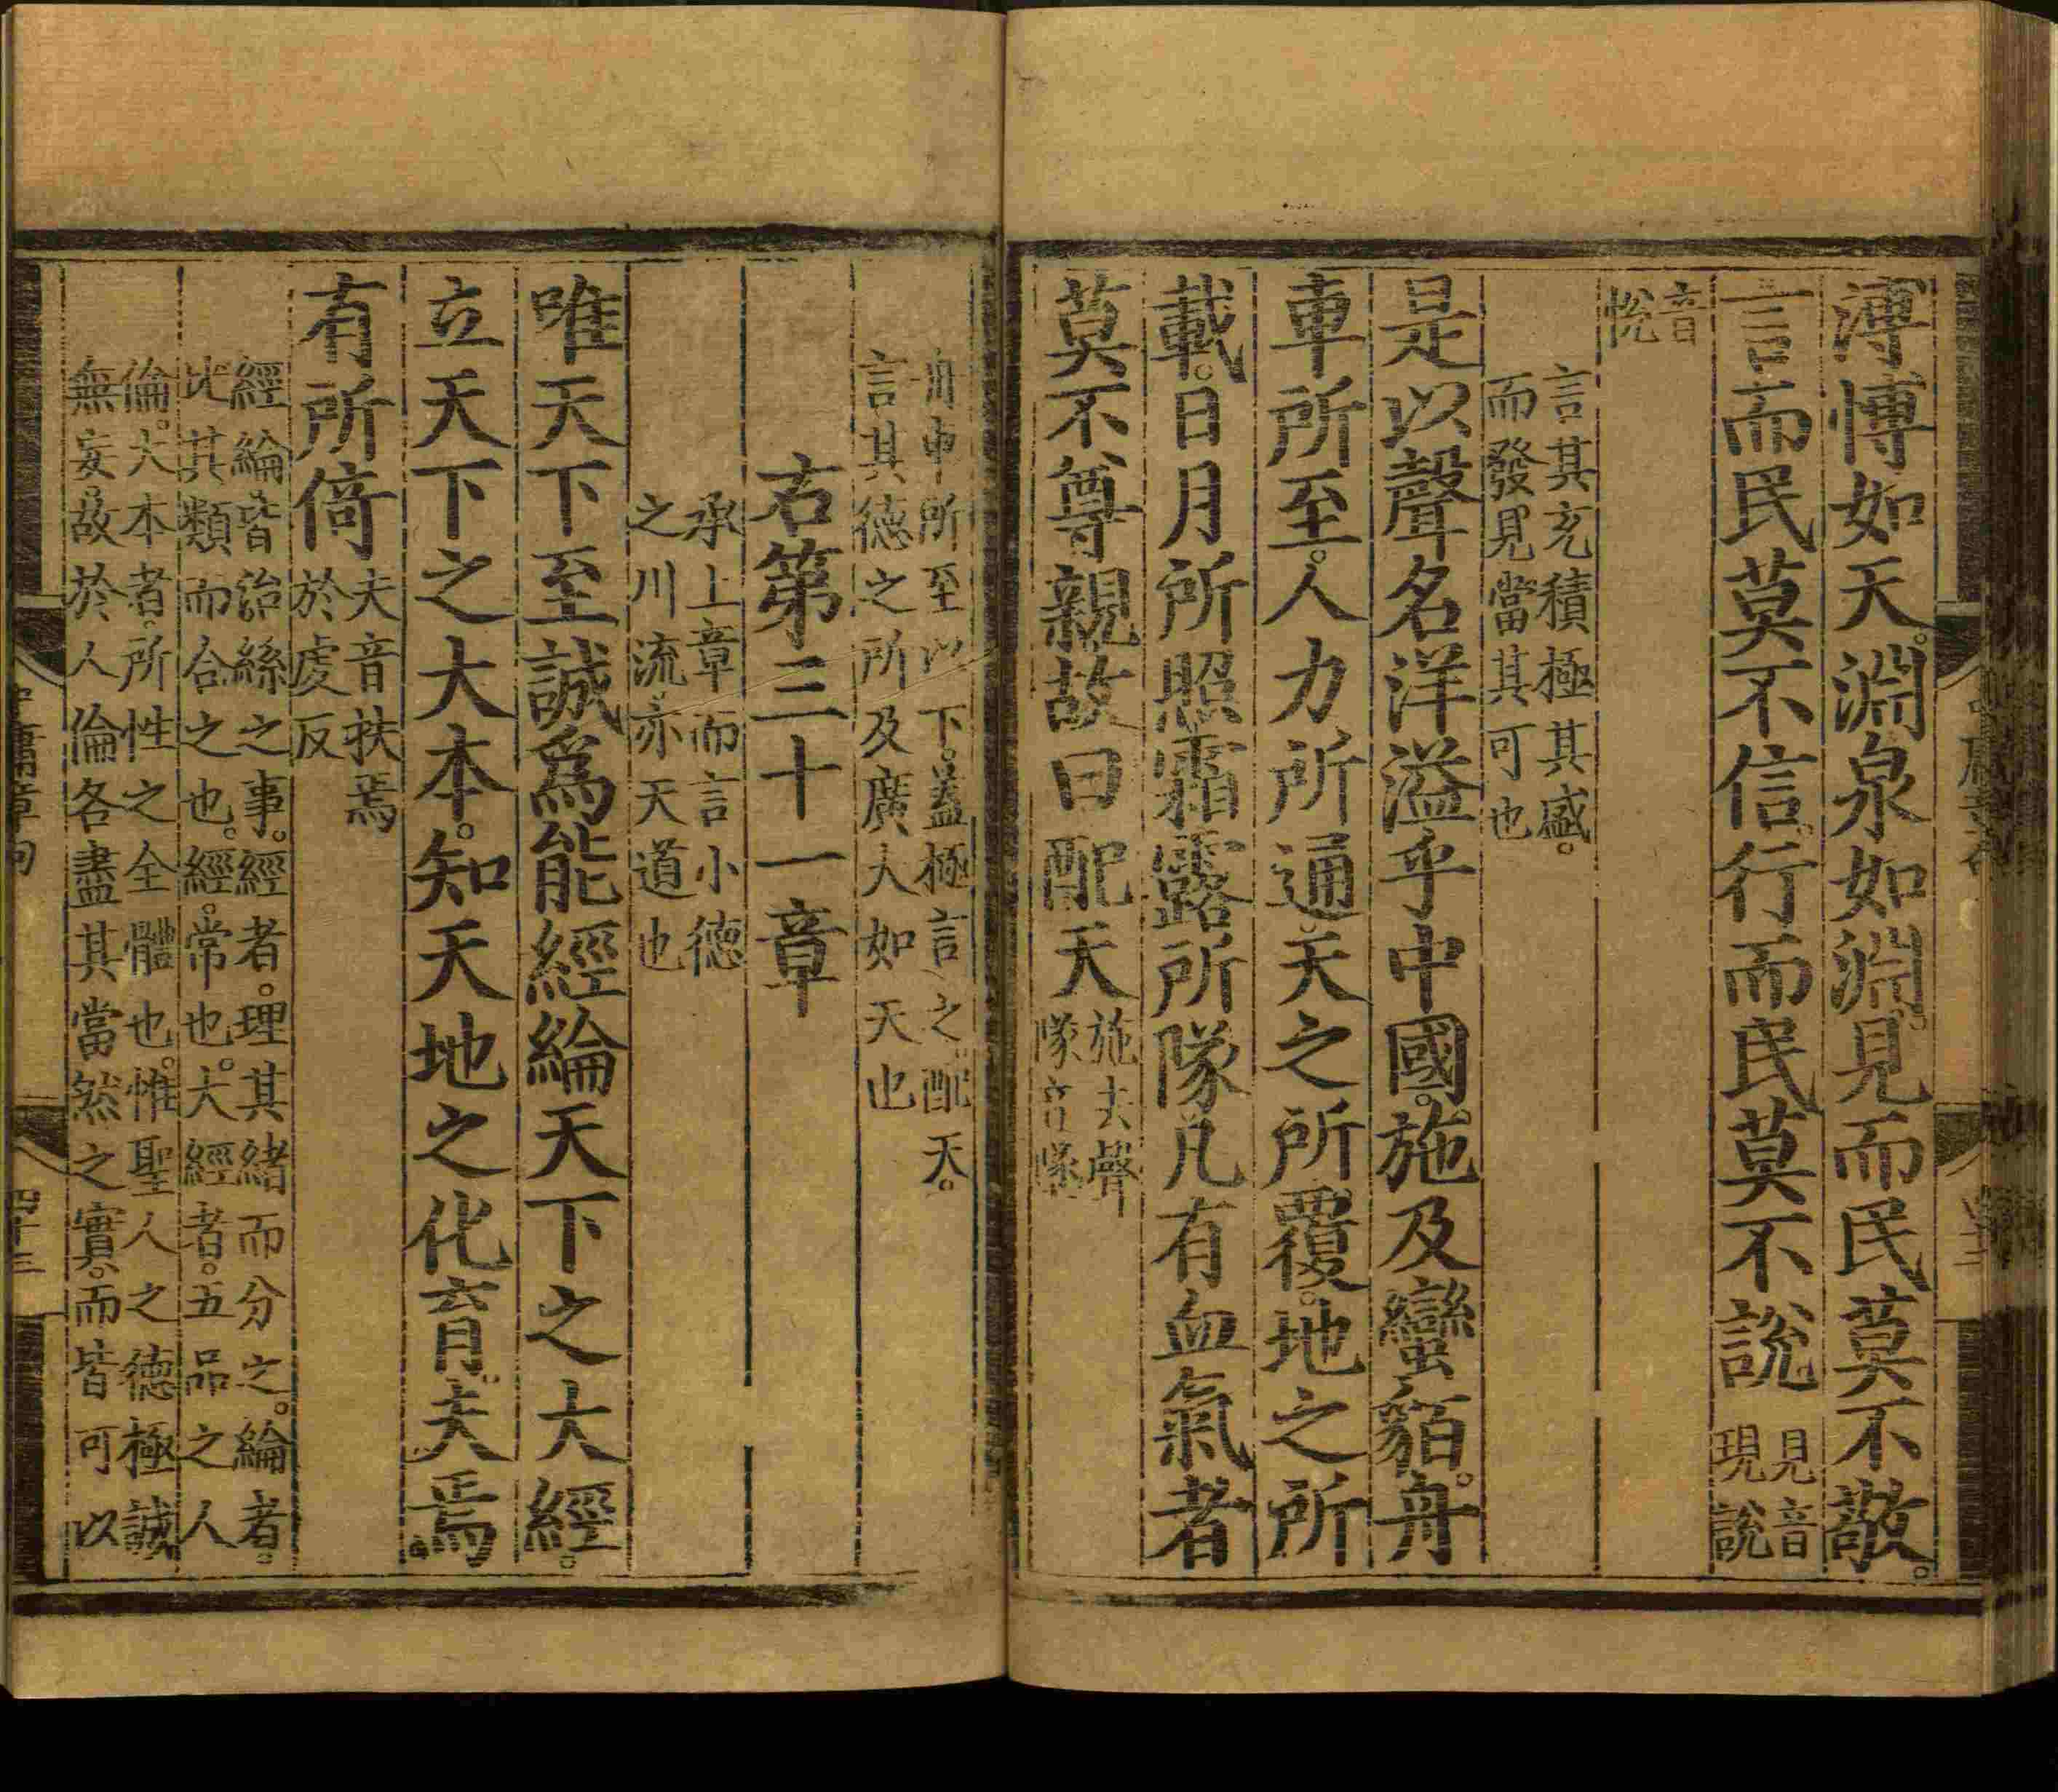 溥愽如天。淵泉如淵。見而民莫不敬。
言而民莫不信。行而民莫不說
見音
現說
音
悅
言其充積極其盛。
而發見當其可也
是以聲名洋溢乎中國。施及蠻貊。舟
車所至。人力所通。天之所覆。地之所
載。日月所照霜露所隊凡有血氣者
莫不尊親故曰配天
施去聲
隊音墜
舟車所至以下。蓋極言之配天。
言其德之所及廣大如天也
右第三十一章
承上章而言小德
之川流。亦天道也
唯天下至誠爲能經綸天下之大經。
立天下之大本。知天地之化育夫焉
有所倚
夫音扶焉
於虔反
經綸皆治絲之事。經者。理其緒而分之。綸者。
比其類而合之也。經。常也。大經者。五品之人
倫。大本者。所性之全體也。惟聖人之德極誠
無妄故於人倫各盡其當然之實。而皆可以
中庸章句
四十三